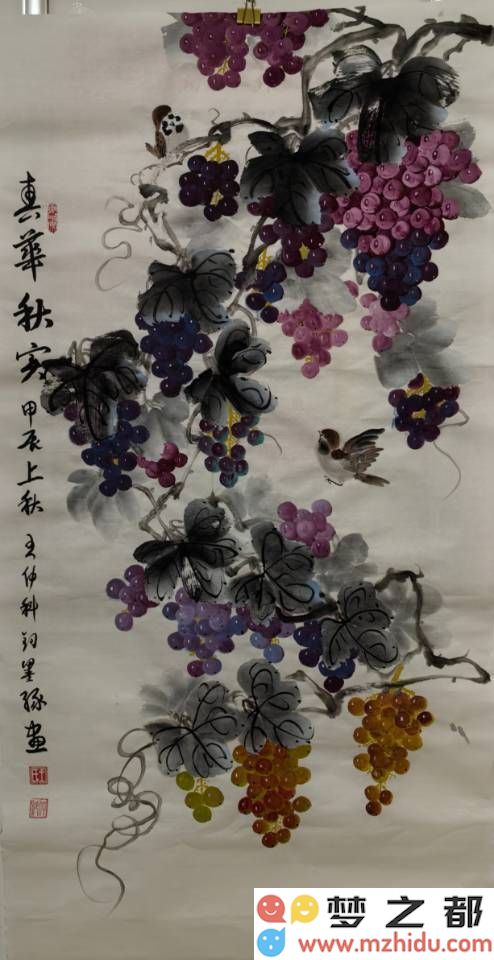 華秋实甲辰上秋王仲科墨缘画
梦之都
www.mzhidu.com